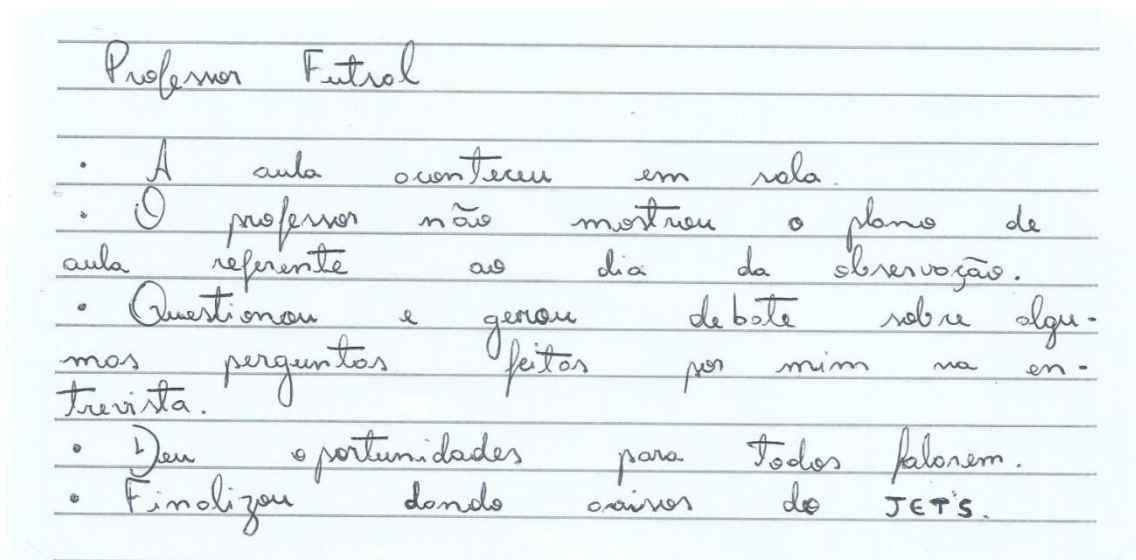 Professor Futsal
· A aula aconteceu em sala.
· O professor não mostrou o plano de
aula referente ao dia da observação.
· Questionou e gerou debate sobre algu-
mas perguntas feitas por mim na en-
trevista.
· Deu oportunidades para todos falarem.
· Finalizou dando avisos do JET'S.